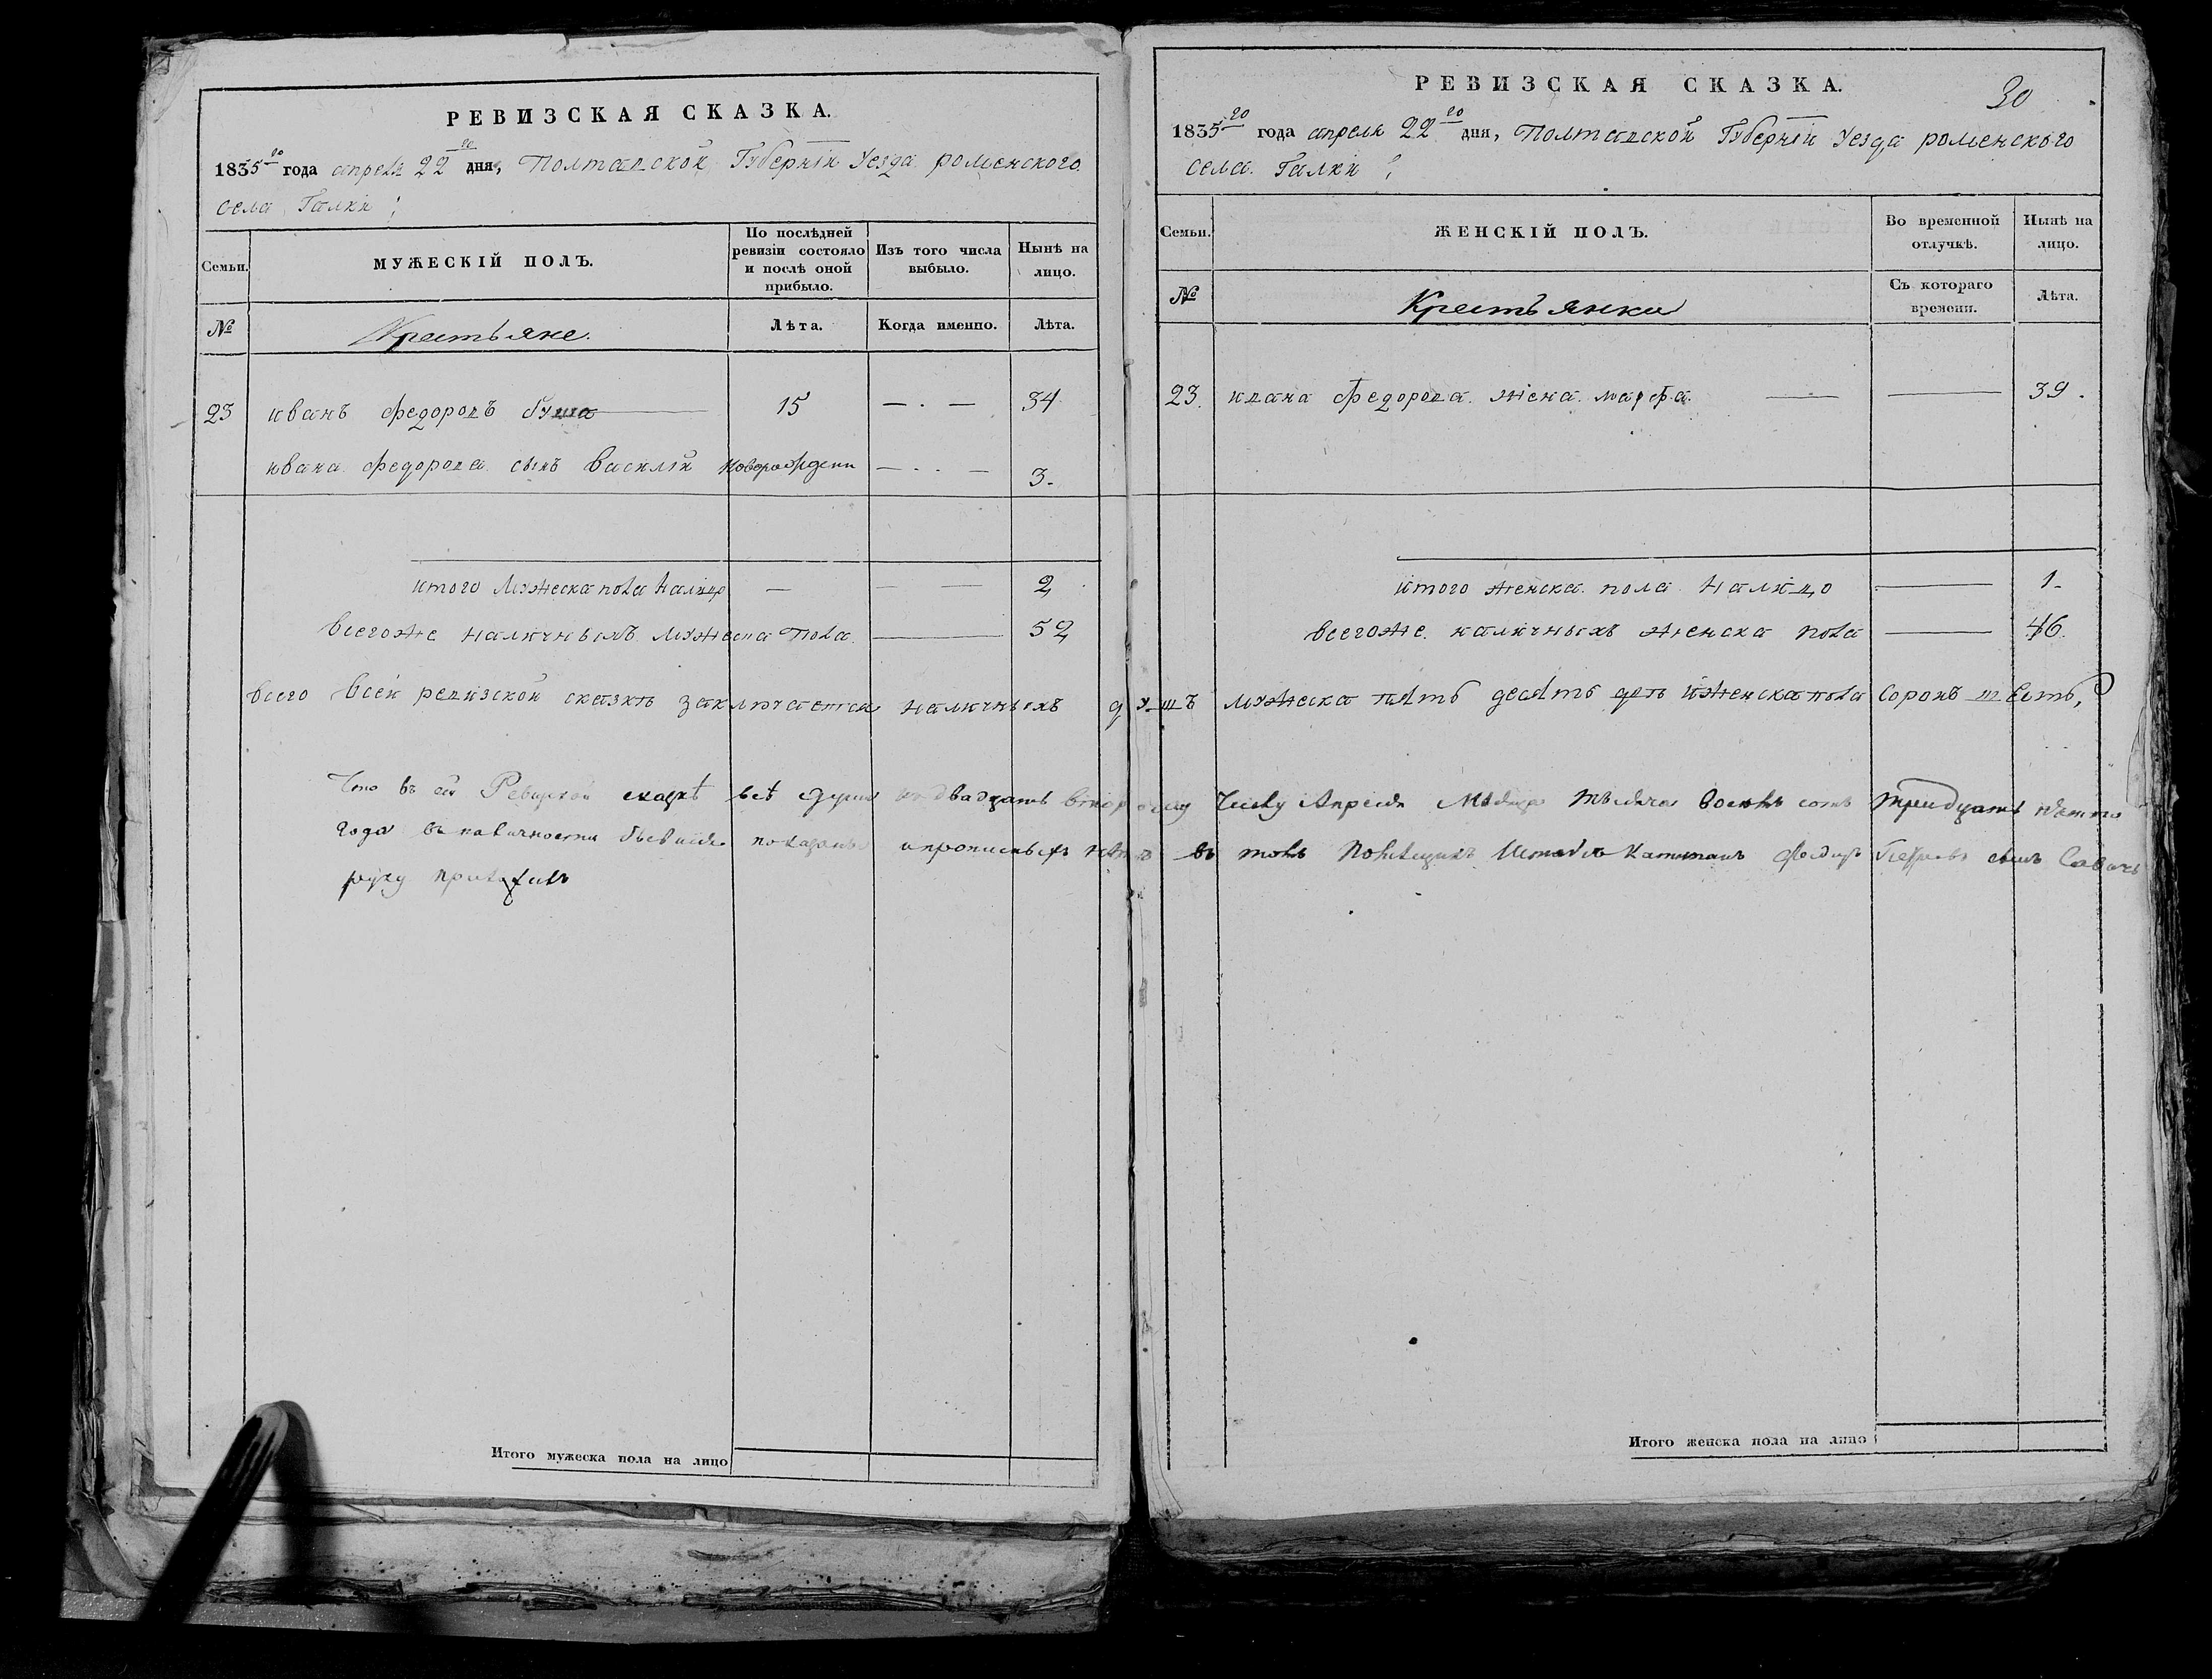 РЕВИЗСКАЯ СКАЗКА.
1835го года апреля 22го дня, Полтавской Губерніи Уезда роменского
села Галки;
Семьи.
МУЖЕСКІЙ ПОЛЪ.
По послѣдней ревизіи состояло и послѣ оной прибыло.
Изъ того числа выбыло.
Нынѣ на лицо.
№
Крестьяне.
Лѣта.
Когда именно.
Лѣта.
23 иванъ федоровъ 15 — . — 34
ивана федорова сынъ василій новорожденн — . . — 3.
итого мужеска пола налицо — — — 2
всегоже наличныхъ мужеска пола — 52
Итого мужеска пола на лицо
РЕВИЗСКАЯ СКАЗКА.
30
1835го года апреля 22го дня, Полтавской Губерніи Уезда роменского
села Галки;
Семьи.
ЖЕНСКІЙ ПОЛЪ.
Во временной отлучкѣ.
Нынѣ на лицо.
№
Крестьянки
Съ котораго времени.
Лѣта.
23. ивана федорова жена марфа — — 39.
итого женска пола налицо — 1.
всегоже наличныхъ женска пола — 46.
всего всей ревизской сказкѣ заключается наличныхъ душъ мужеска пять десятъ две и женска пола сорокъ шесть,
Что въ сей Ревизской сказкѣ всѣ души къ двадцать второму числу Апреля Месяца тысяча восемь сотъ тридцать пятого
года въ наличности бывшие показаны и прописныхъ нетъ въ томъ помещикъ Штабсъ Капитанъ Петровъ сынъ
руку приложилъ
Итого женска пола на лицо